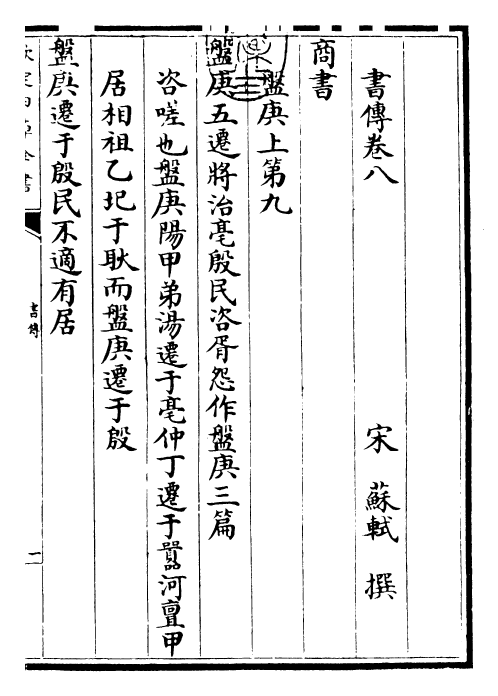 書傳卷八
宋 蘇軾 撰
商書
盤庚上第九
盤庚五遷將治亳殷民咨胥怨作盤庚三篇
咨嗟也盤庚陽甲弟湯遷于亳仲丁遷于囂河亶甲
居相祖乙圮于耿而盤庚遷于殷
盤庚遷于殷民不適有居
書傳